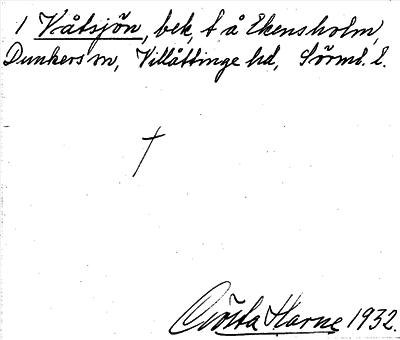 1 Kåtsjön, bek, t. å Ekensholm,
Dunkers sn, Villåttinge hd, Sörml. l.
Gösta Harne 1932.